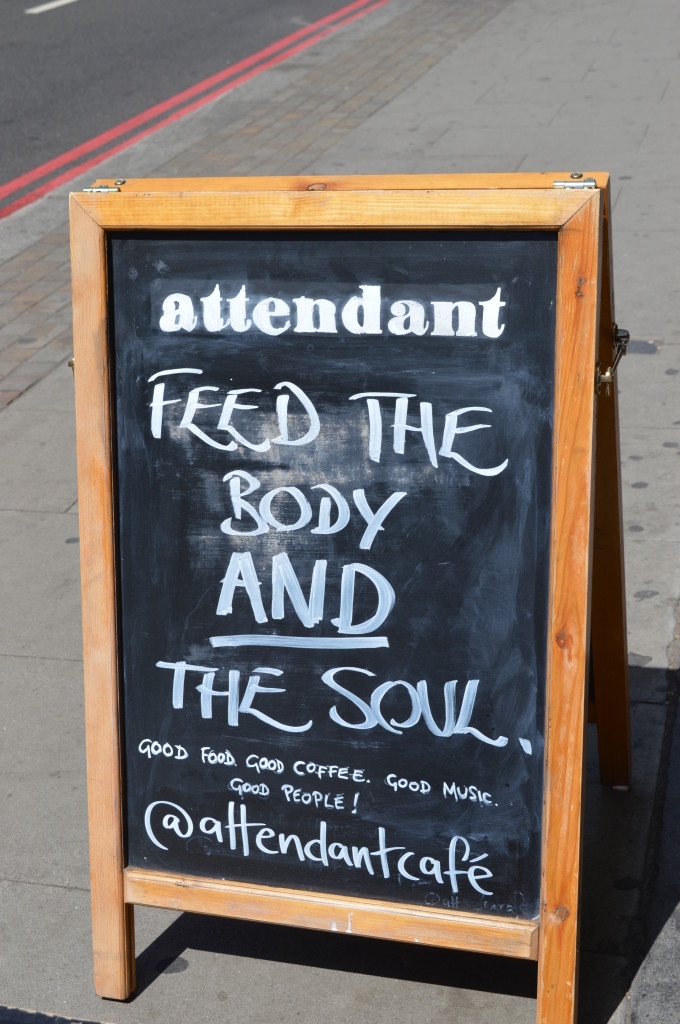 attendant
FEED THE
BODY
AND
THE SOUL.
GOOD FOOD. GOOD COFFEE. GOOD MUSIC.
GOOD PEOPLE!
@attendantcafé